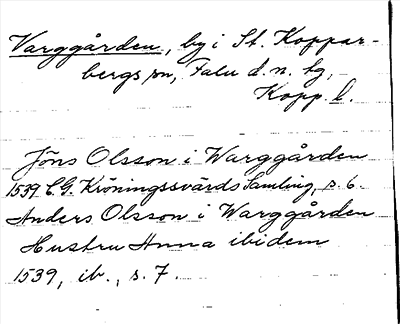 Varggården, by i St. Koppar-
bergs sn, Falu d. n. tg,
Kopp. l.
Jöns Olsson i Warggården
1539 C.G. Kröningssvärds Samling, s. 6.
Anders Olsson i Warggården
Hustru Anna ibidem
1539, ib., s. 7.